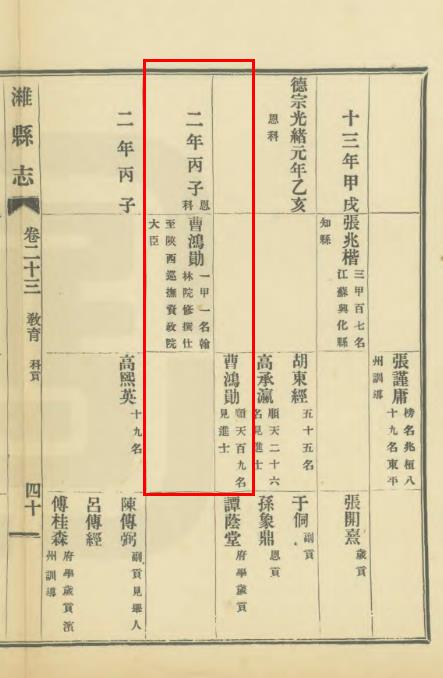 張謹庸
榜名兆桓八
十九名東平
州訓導
十三年甲戌
張兆楷
三甲百七名
江蘇興化縣
知縣
張開熹
歲貢
德宗光緒元年乙亥
恩科
胡東經
五十五名
于侗
副貢
高承瀛
順天二十六
名見進士
孫象鼎
恩貢
曹鴻勛
順天百九名
見進士
譚蔭堂
府學歲貢
二年丙子
恩
科
曹鴻勛
一甲一名翰
林院修撰仕
至陝西巡撫資政院
大臣
二年丙子
高熙英
十九名
陳傳弼
副貢見舉人
呂傳經
傅桂森
府學歲貢濱
州訓導
濰縣志
卷二十三
教育
科貢
四十